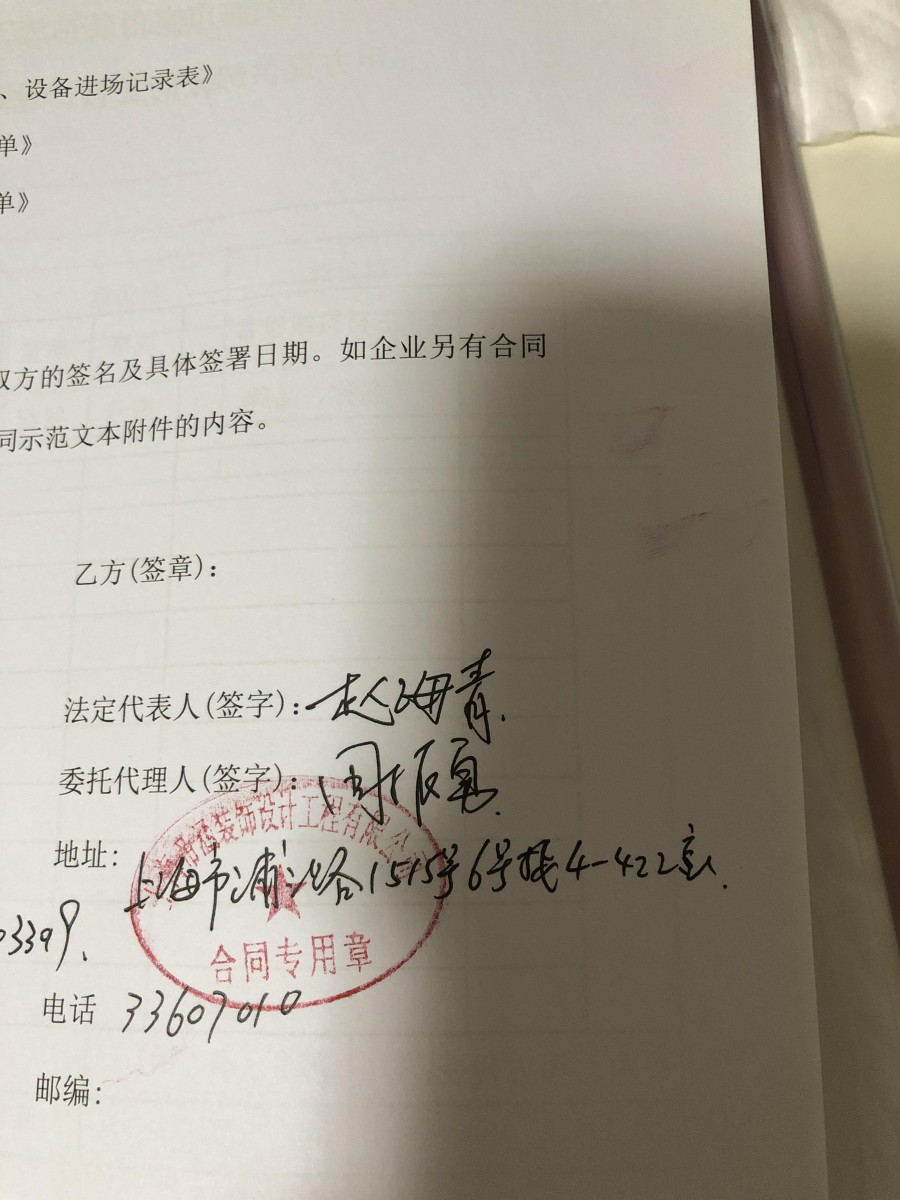 、设备进场记录表》
单》
单》
双方的签名及具体签署日期。如企业另有合同
同示范文本附件的内容。
乙方(签章):
法定代表人(签字): 赵海青
委托代理人(签字): 周振
装饰设计工程有限公
地址: 上海市浦 路1515号6号楼4-422室
03399
合同专用章
电话 33607010
邮编: